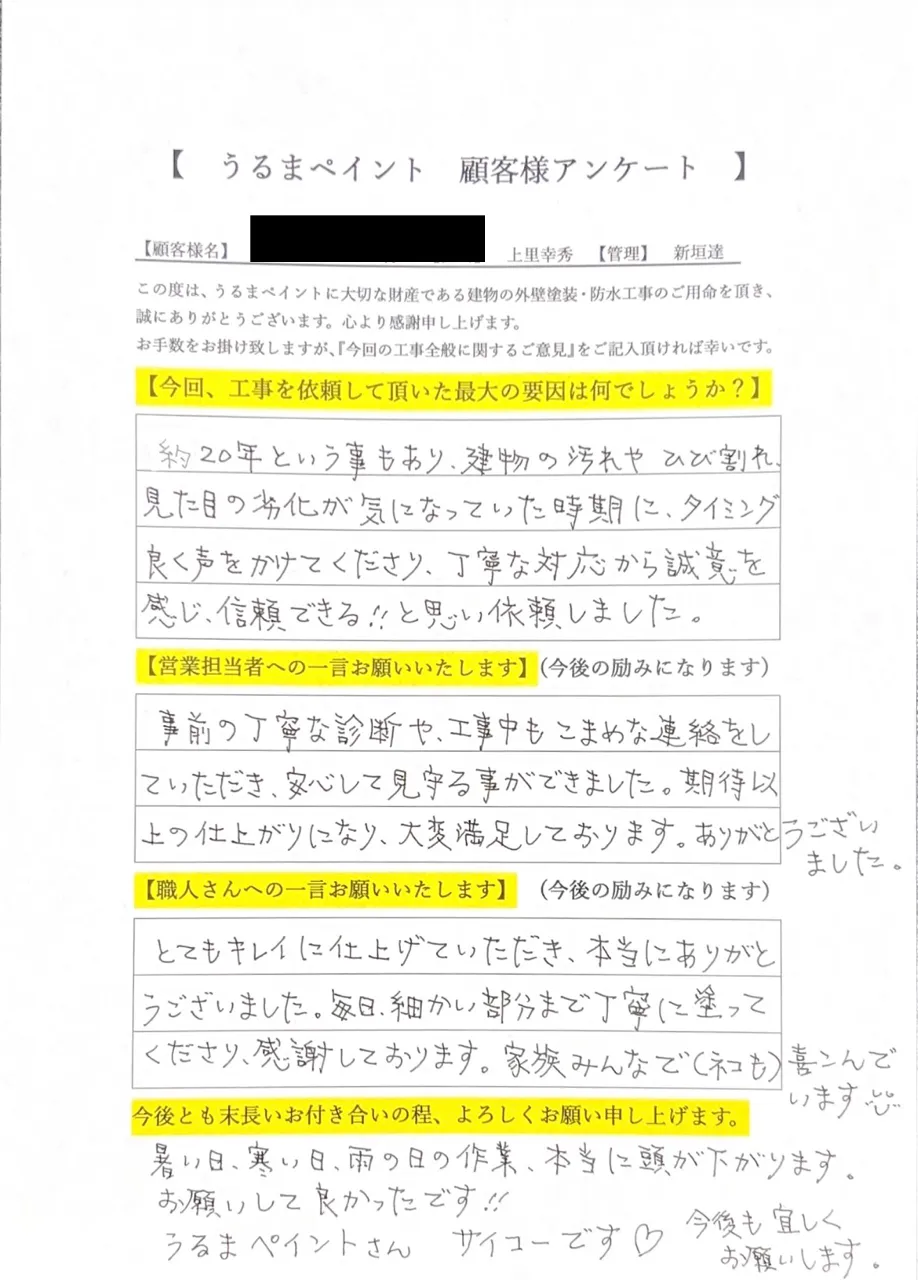 【 うるまペイント 顧客様アンケート 】
【顧客様名】 上里幸秀 【管理】 新垣達
この度は、うるまペイントに大切な財産である建物の外壁塗装・防水工事のご用命を頂き、
誠にありがとうございます。心より感謝申し上げます。
お手数をお掛け致しますが、『今回の工事全般に関するご意見』をご記入頂ければ幸いです。
【今回、工事を依頼して頂いた最大の要因は何でしょうか？】
約20年という事もあり、建物の汚れや ひび割れ、
見た目の劣化が気になっていた時期に、タイミング
良く声をかけてくださり、丁寧な対応から誠意を
感じ、信頼できる!!と思い依頼しました。
【営業担当者への一言お願いいたします】(今後の励みになります)
事前の丁寧な診断や、工事中もこまめな連絡をし
ていただき、安心して見守る事ができました。期待以
上の仕上がりになり、大変満足しております。ありがとうござい
ました。
【職人さんへの一言お願いいたします】 (今後の励みになります)
とてもキレイに仕上げていただき、本当にありがと
うございました。毎日、細かい部分まで丁寧に塗って
くださり、感謝しております。家族みんなで(ネコも)喜こんで
います
今後とも末長いお付き合いの程、よろしくお願い申し上げます。
暑い日、寒い日、雨の日の作業、本当に頭が下がります。
お願いして良かったです!!
うるまペイントさん サイコーです♡ 今後も宜しく
お願いします。